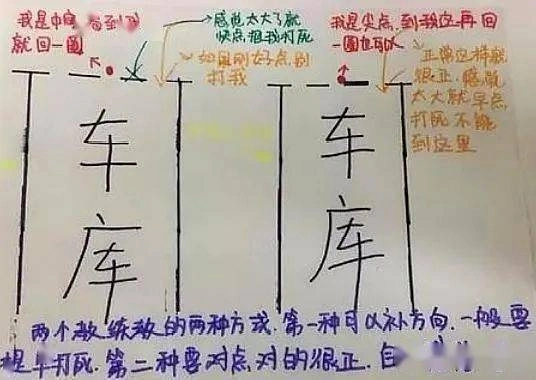 我是中
就回一圈
感觉太大了就
快点把我打死
如果刚好点，别
打我
我是尖点，到我这再回
一圈也可以
正常这样就
很正，感觉
太大就早点
打死不能
到这里
车
库
车
库
两个教练教的两种方式，第一种可以补方向，一般要
提早打死，第二种要对点，对的很正，自